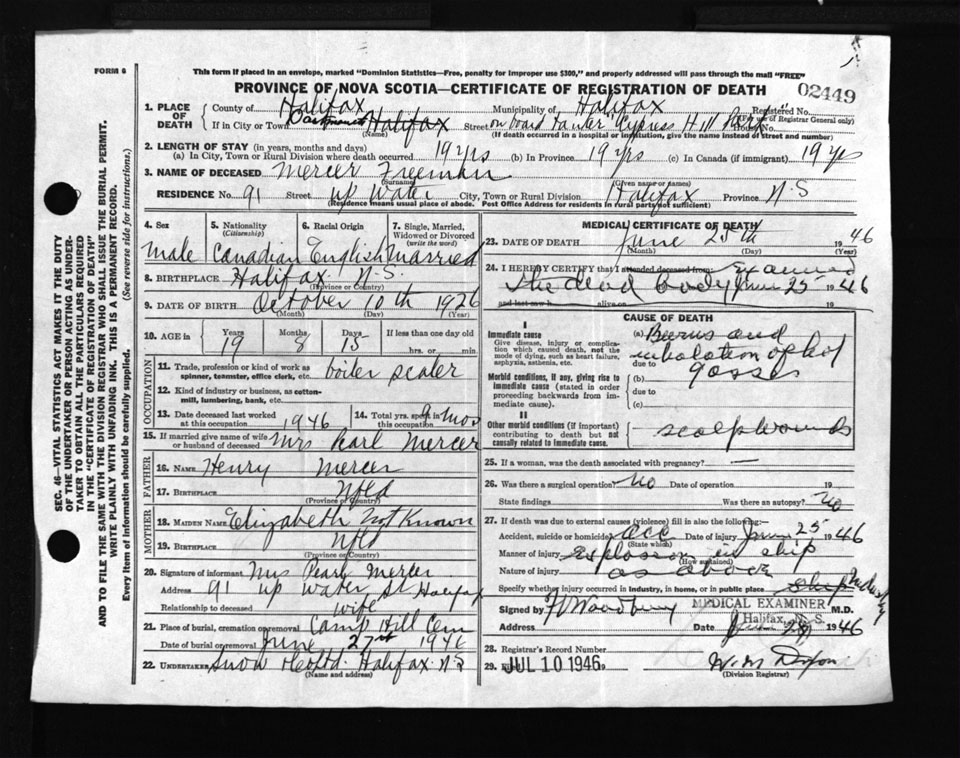 FORM 6
This form if placed in an envelope, marked "Dominion Statistics—Free, penalty for improper use $300," and properly addressed will pass through the mail "FREE"
PROVINCE OF NOVA SCOTIA—CERTIFICATE OF REGISTRATION OF DEATH
02449
SEC. 46—VITAL STATISTICS ACT MAKES IT THE DUTY
OF THE UNDERTAKER OR PERSON ACTING AS UNDER-
TAKER TO OBTAIN ALL THE PARTICULARS REQUIRED
IN THE "CERTIFICATE OF REGISTRATION OF DEATH"
AND TO FILE THE SAME WITH THE DIVISION REGISTRAR WHO SHALL ISSUE THE BURIAL PERMIT.
WRITE PLAINLY WITH UNFADING INK. THIS IS A PERMANENT RECORD.
Every item of Information should be carefully supplied. (See reverse side for instructions.)
1. PLACE OF DEATH County of Halifax Municipality of Halifax Registered No.
(For use of Registrar General only)
If in City or Town Halifax Street on board Tanker "Cypress Hill Park" House No.
(Name) (If death occurred in a hospital or institution, give the name instead of street and number)
2. LENGTH OF STAY (in years, months and days)
(a) In City, Town or Rural Division where death occurred 19 yrs (b) In Province 19 yrs (c) In Canada (if immigrant) 19 yrs
3. NAME OF DECEASED Mercer Freeman
(Surname) (Given name or names)
RESIDENCE No. 91 Street Up Water City, Town or Rural Division Halifax Province N.S
(Residence means usual place of abode. Post Office Address for residents in rural parts not sufficient)
4. Sex 5. Nationality (Citizenship) 6. Racial Origin 7. Single, Married, Widowed or Divorced (write the word)
Male Canadian English Married
8. BIRTHPLACE Halifax N.S.
(Province or Country)
9. DATE OF BIRTH October 10th 1926
(Month) (Day) (Year)
10. AGE in Years 19 Months 8 Days 15 If less than one day old hrs. or min.
OCCUPATION
11. Trade, profession or kind of work as spinner, teamster, office clerk, etc. boiler scaler
12. Kind of industry or business, as cotton-mill, lumbering, bank, etc.
13. Date deceased last worked at this occupation 1946 14. Total yrs. spent 9 mos
15. If married give name of wife or husband of deceased Mrs Pearl Mercer
FATHER
16. NAME Henry Mercer
17. BIRTHPLACE Nfld
(Province or Country)
MOTHER
18. MAIDEN NAME Elizabeth Not Known
19. BIRTHPLACE Nfld
(Province or Country)
20. Signature of informant Mrs Pearl Mercer
Address 91 Up Water St Halifax
Relationship to deceased wife
21. Place of burial, cremation or removal Camp Hill Cem
Date of burial or removal June 27 1946
22. UNDERTAKER Snow Halifax N.S
(Name and address)
MEDICAL CERTIFICATE OF DEATH
23. DATE OF DEATH June 25th 1946
(Month) (Day) (Year)
24. I HEREBY CERTIFY that I attended deceased from: Examined
the dead body June 25 1946
and last saw h alive on
CAUSE OF DEATH
I
Immediate cause
Give disease, injury or complication which caused death, not the mode of dying, such as heart failure, asphyxia, asthenia, etc.
(a) Burns and
inhalation of hot
due to gasses
Morbid conditions, if any, giving rise to immediate cause (stated in order proceeding backwards from immediate cause).
(b)
due to
(c)
II
Other morbid conditions (if important) contributing to death but not causally related to immediate cause.
scalp wounds
25. If a woman, was the death associated with pregnancy? —
26. Was there a surgical operation? No Date of operation 19
State findings Was there an autopsy? No
27. If death was due to external causes (violence) fill in also the following:
Accident, suicide or homicide? acc Date of injury June 25 1946
(State which)
Manner of injury explosion in ship
(How sustained)
Nature of injury as above
Specify whether injury occurred in industry, in home, or in public place Ship Industry
Signed by F V Woodbury MEDICAL EXAMINER M.D.
Halifax, N. S.
Address Date June 1946
28. Registrar's Record Number
29. JUL 10 1946 W. M. Dixon
(Division Registrar)